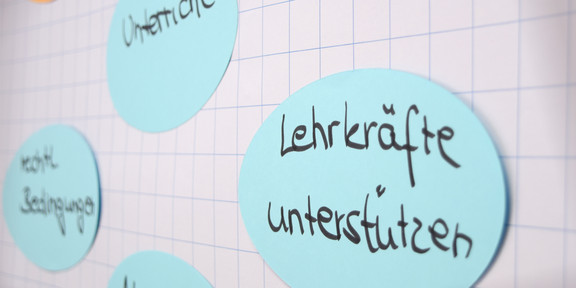 Unterricht
Lehrkräfte
unterstützen
rechtl.
Bedingungen